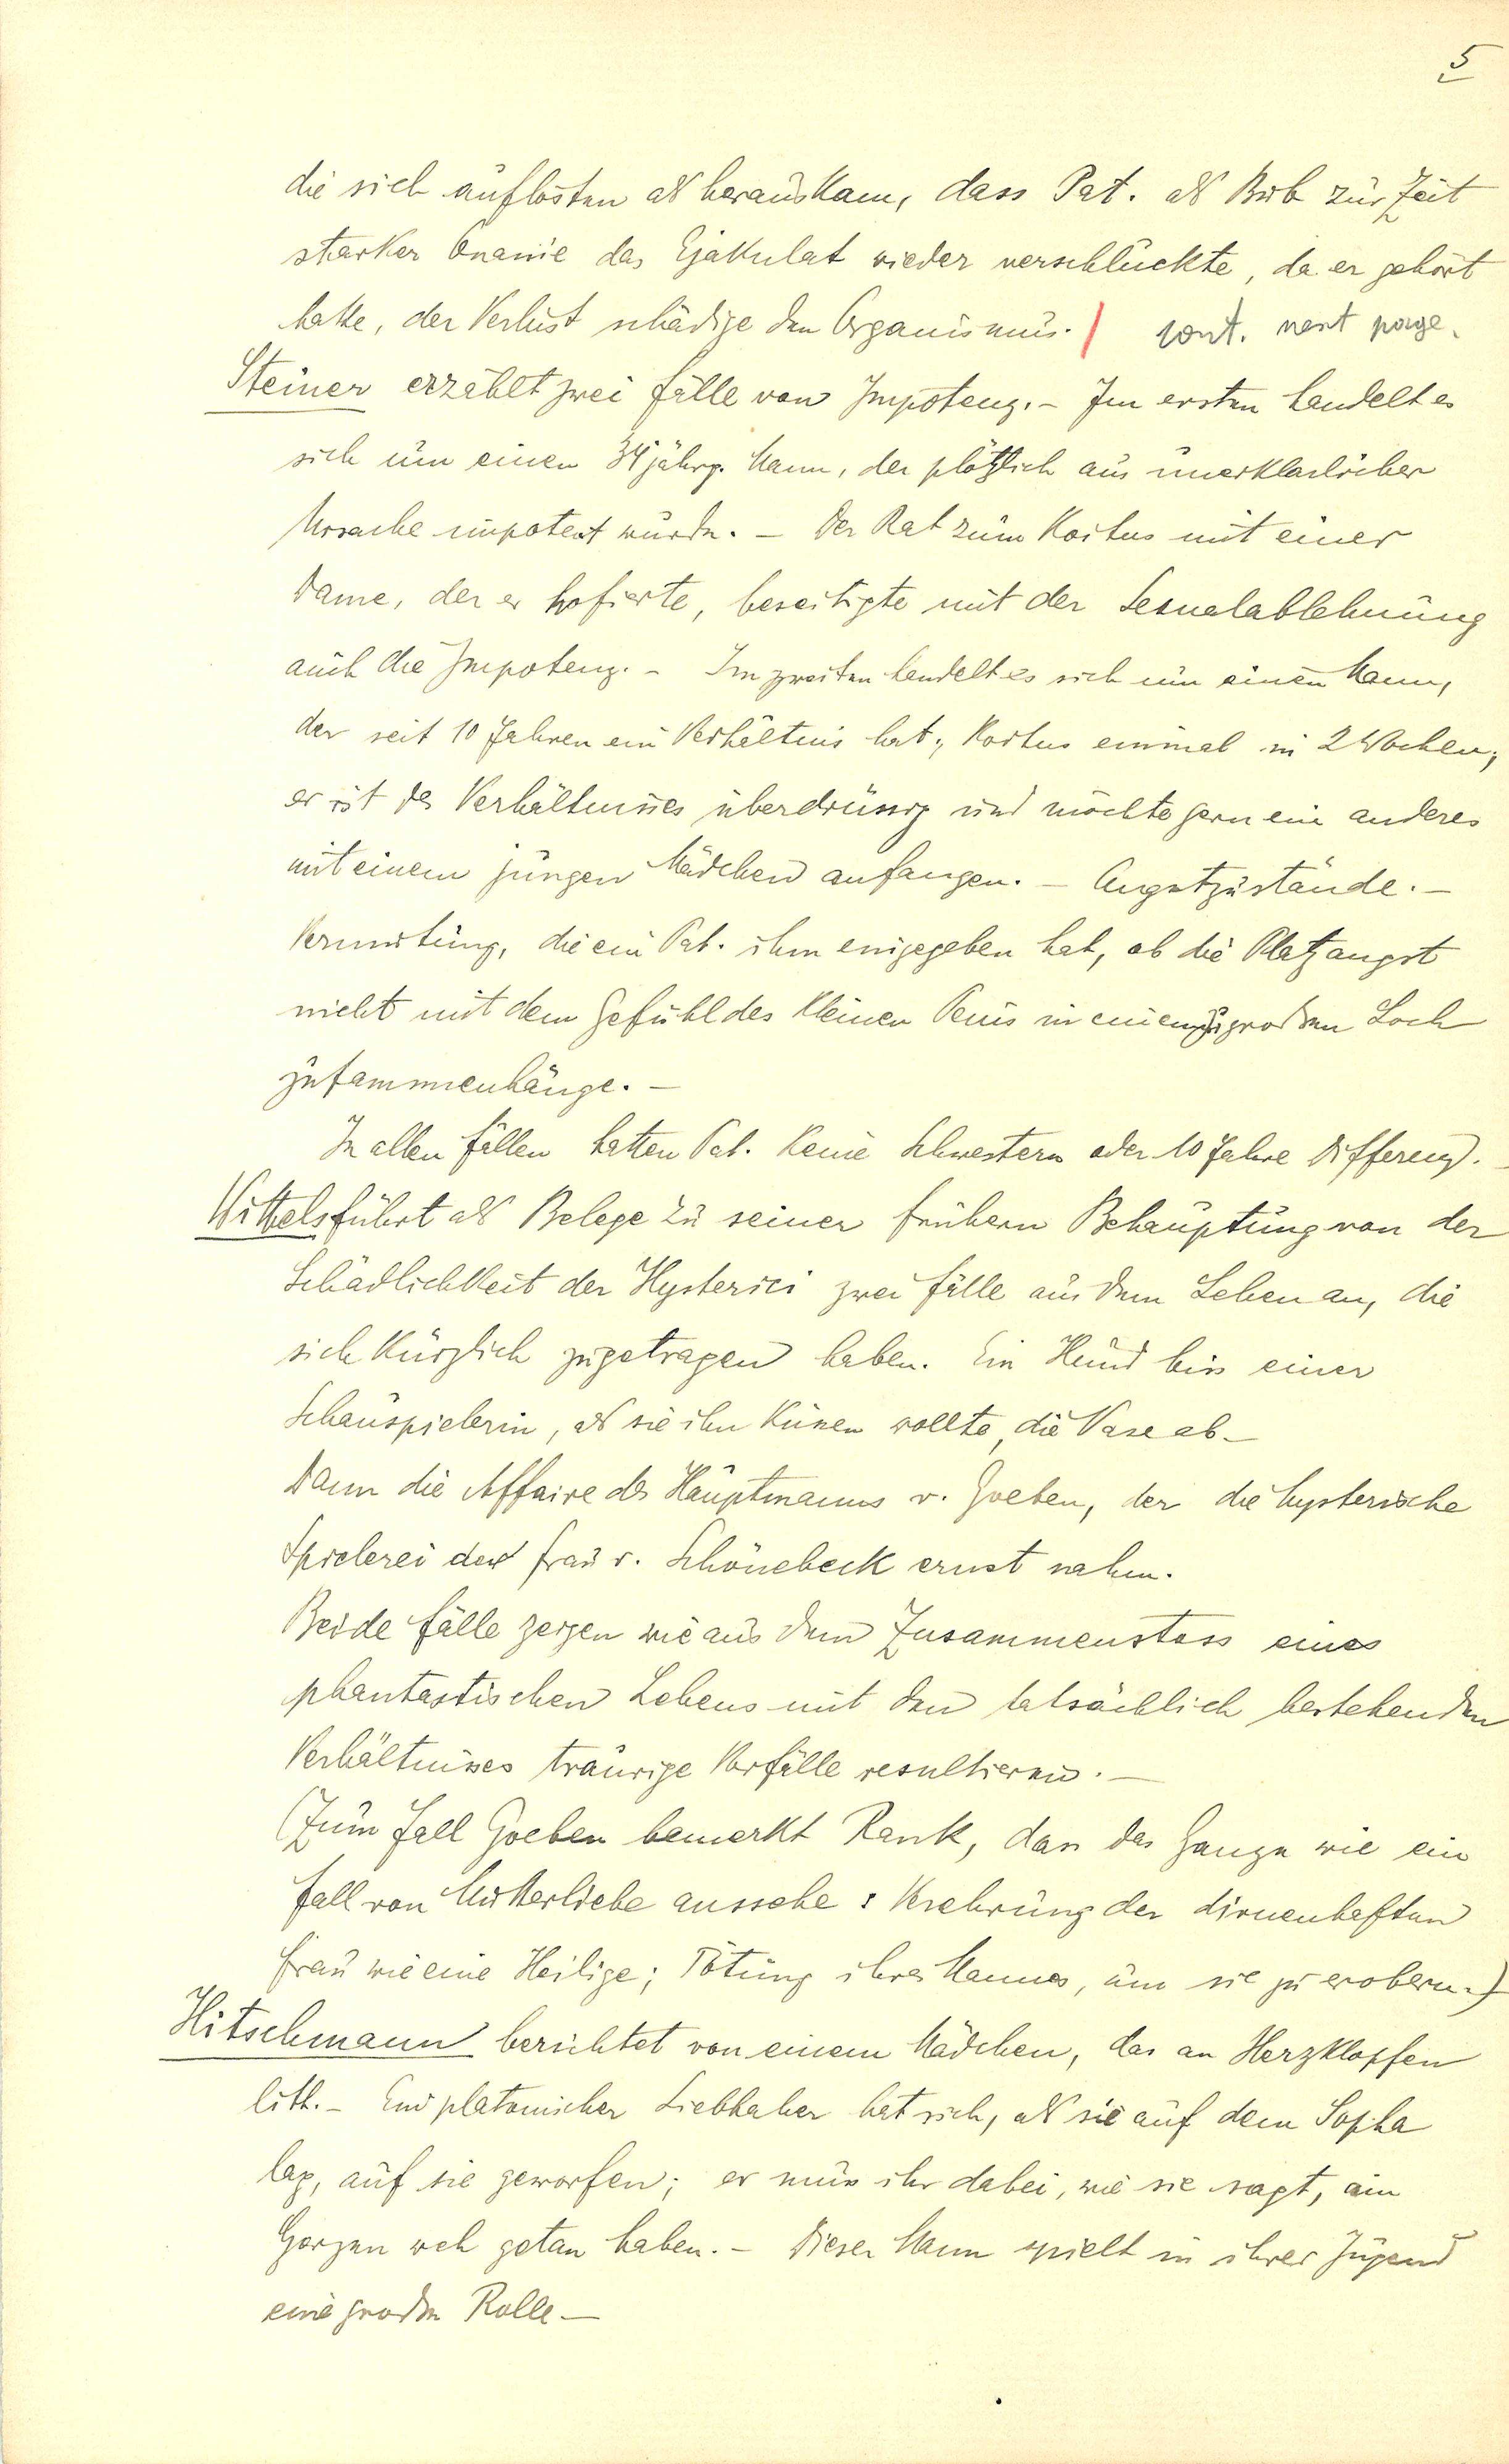 5
die sich auflösten als herauskam, dass Pat. als Bub zur Zeit
starker Onanie das Ejakulat wieder verschluckte, da er gehört
hatte, der Verlust schädige den Organismus. / cont. next page.
Steiner erzählt zwei Fälle von Impotenz. – Im ersten handelt es
sich um einen 34jährg. Mann, der plötzlich aus unerklärlicher
Ursache impotent wurde. – Der Rat zum Koitus mit einer
Dame, der er hofierte, beseitigte mit der Sexualablehnung
auch die Impotenz. – Im zweiten handelt es sich um einen Mann,
der seit 10 Jahren ein Verhältnis hat; Koitus einmal in 2 Wochen;
er ist des Verhältnisses überdrüssig und möchte gern ein anderes
mit einem jungen Mädchen anfangen. – Angstzustände. –
Vermutung, die ein Pat. ihm eingegeben hat, ob die Platzangst
nicht mit dem Gefühl des kleinen Penis in einem zu großen Loch
zusammenhänge. –
In allen Fällen hatten Pat. keine Schwestern oder 10 Jahre Differenz. –
Wittels führt als Belege zu seiner frühern Behauptung von der
Schädlichkeit der Hysterici zwei Fälle aus dem Leben an, die
sich kürzlich zugetragen haben. Ein Hund biss einer
Schauspielerin, als sie ihn küssen wollte, die Nase ab –
Dann die Affaire des Hauptmanns v. Goeben, der die hysterische
Spielerei der Frau v. Schönebeck ernst nahm.
Beide Fälle zeigen wie aus dem Zusammenstoss eines
phantastischen Lebens mit den tatsächlich bestehenden
Verhältnisses traurige Vorfälle resultieren. –
(Zum Fall Goeben bemerkt Rank, dass das Ganze wie ein
Fall von Mutterliebe aussehe: Verehrung der dirnenhaften
Frau wie eine Heilige; Tötung ihres Mannes, um sie zu erobern.)
Hitschmann berichtet von einem Mädchen, das an Herzklopfen
litt. – Ein platonischer Liebhaber hat sich, als sie auf dem Sopha
lag, auf sie geworfen; er muss ihr dabei, wie sie sagt, am
Herzen weh getan haben. – Dieser Mann spielt in ihrer Jugend
eine große Rolle –